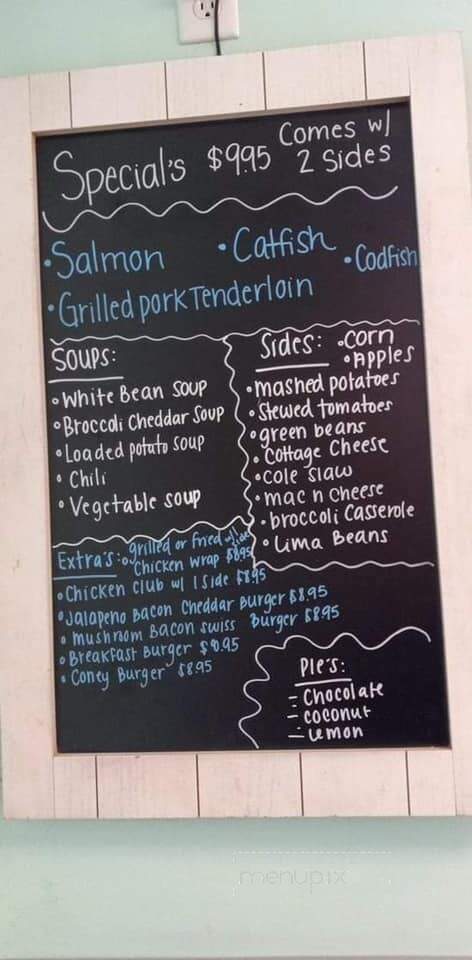 Special's $9.95 Comes w/ 2 Sides
• Salmon • Catfish • Codfish
• Grilled pork Tenderloin
Soups:
• White Bean soup
• Broccoli Cheddar Soup
• Loaded potato soup
• Chili
• Vegetable soup
Sides: • Corn
• Apples
• mashed potatoes
• Stewed tomatoes
• green beans
• Cottage Cheese
• Cole slaw
• mac n cheese
• broccoli Casserole
• Lima Beans
Extra's: • grilled or fried w/1 side
Chicken Wrap $8.95
• Chicken Club w/ 1 Side $8.95
• Jalapeno Bacon Cheddar Burger $8.95
• mushroom Bacon Swiss Burger $8.95
• Breakfast Burger $8.95
• Coney Burger $8.95
Pie's:
- Chocolate
- coconut
- Lemon
menupix